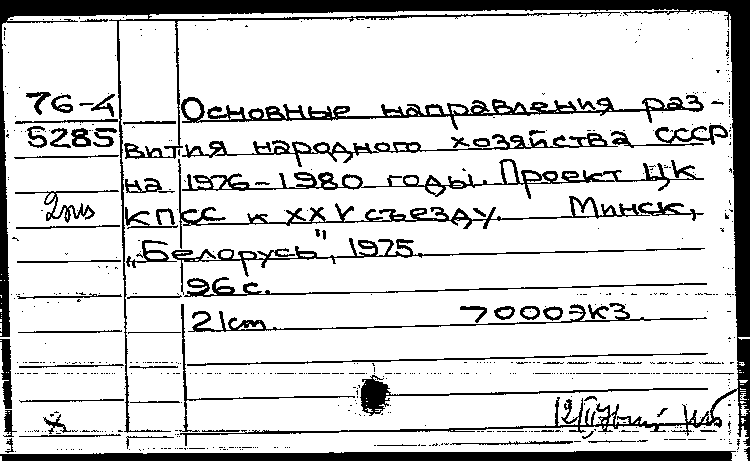 76-4
5285
Основные направления раз-
вития народного хозяйства СССР
на 1976-1980 годы. Проект ЦК
КПСС к XXV съезду. Минск,
„Беларусь", 1975.
96 с.
21cm. 7000экз.